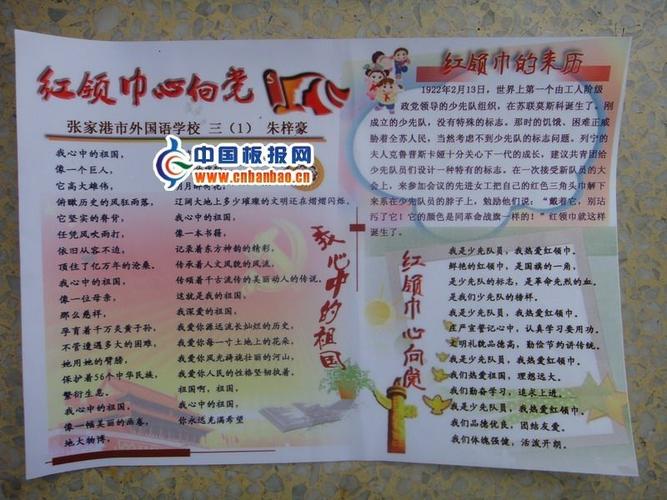 红领巾心向党
张家港市外国语学校 三（1） 朱梓豪
我心中的祖国，
像一个巨人，
它高大雄伟，
俯瞰历史的风狂雨落，
它坚实的脊背，
任凭风吹雨打，
依旧从容不迫，
顶住了亿万年的沧桑。
我心中的祖国，
像一位母亲，
那么慈祥，
孕育着千万炎黄子孙，
不管遭遇多大的困难，
她用她的臂膀，
保护着56个中华民族，
繁衍生息。
我心中的祖国，
像一幅美丽的画卷，
地大物博，
辽阔大地上多少璀璨的文明还在熠熠闪烁。
我心中的祖国，
像一本书籍，
记录着东方神韵的精彩，
传承着人文风貌的风流，
传颂着千古流传的美丽动人的传说。
这就是我的祖国，
我深爱的祖国。
我爱你源远流长灿烂的历史，
我爱你每一寸土地上的花朵，
我爱你风光旖旎壮丽的河山，
我爱你人民的性格坚韧执着。
祖国啊，祖国，
我心中的祖国，
你永远充满希望
我心中的祖国
中国板报网
www.cnbanbao.cn
红领巾的来历
1922年2月13日，世界上第一个由工人阶级
政党领导的少先队组织，在苏联莫斯科诞生了。刚
成立的少先队，没有特殊的标志。那时的饥饿、困难正威
胁着全苏人民，当然考虑不到少先队的标志问题。列宁的
夫人克鲁普斯卡娅十分关心下一代的成长，建议共青团给
少先队员们设计一种特有的标志。在一次接受新队员的大
会上，来参加会议的先进女工把自己的红色三角头巾解下
来系在少先队员的脖子上，勉励他们说：“戴着它，别玷
污了它！它的颜色是同革命战旗一样的！”红领巾就这样
诞生了。
红领巾心向党
我是少先队员，我热爱红领巾。
鲜艳的红领巾，是国旗的一角。
是少先队的标志，是革命先烈的血。
是我们少先队的榜样。
我是少先队员，我热爱红领巾。
庄严宣誓记心中，认真学习要用功。
文明礼貌品德高，勤俭节约讲传统。
我是少先队员，我热爱红领巾。
我们热爱祖国，理想远大。
我们勤奋学习，追求上进。
我是少先队员，我热爱红领巾。
我们品德优良，团结友爱。
我们体魄强健，活泼开朗。